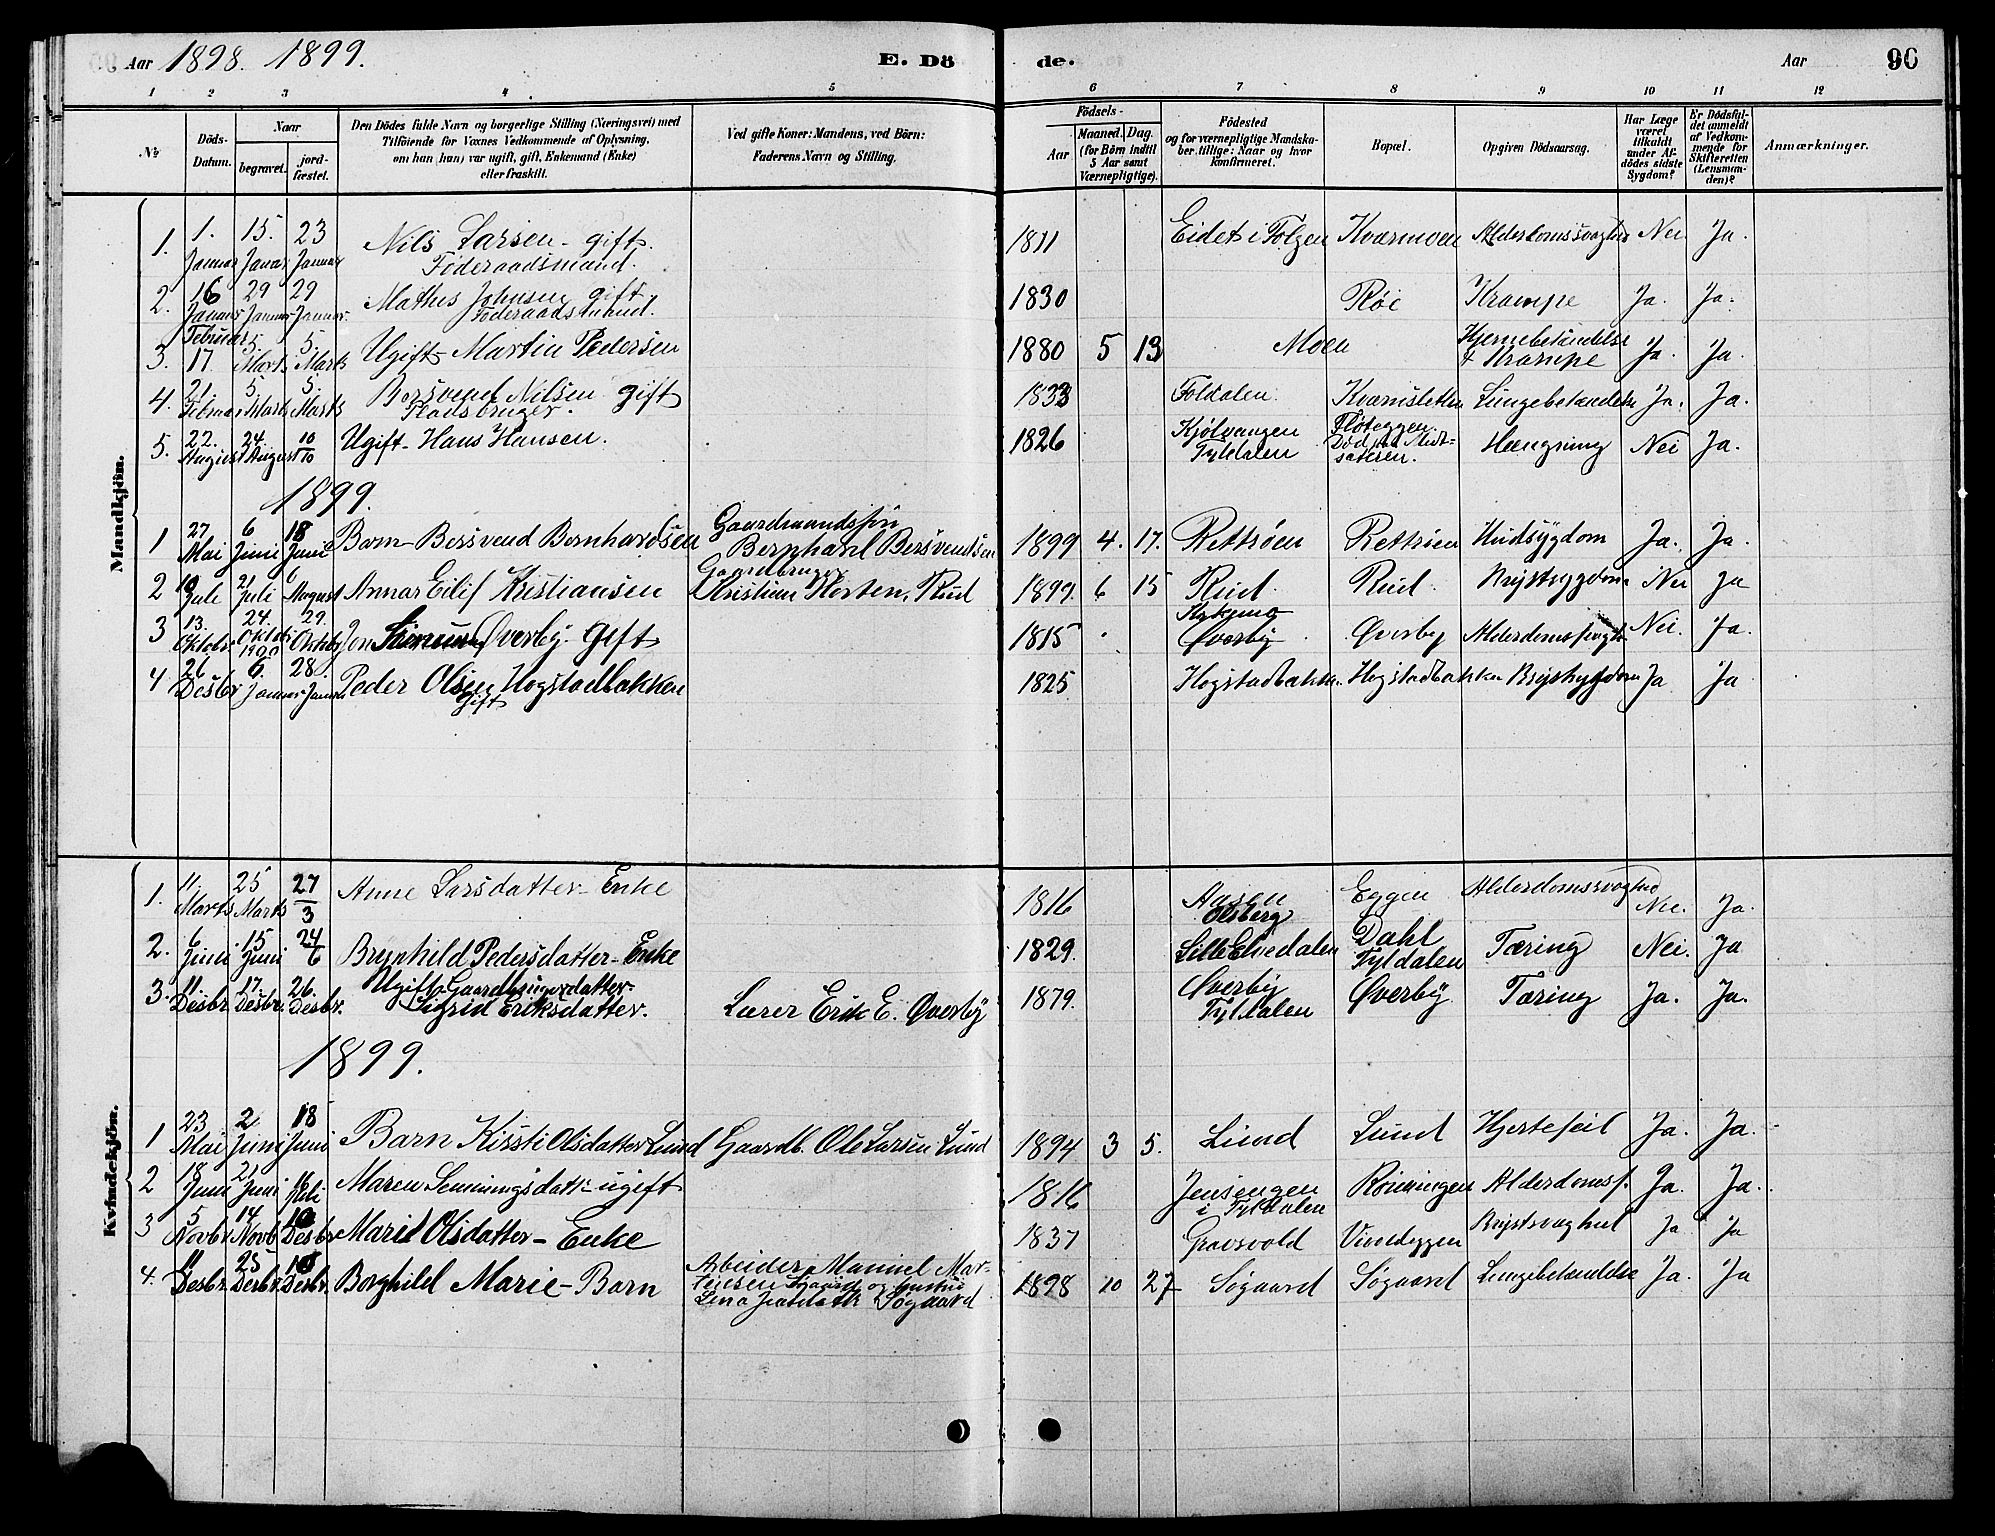 Aar 1898. 1899.
E. Dö de.
Aar 90
1 2 3 4 5 6 7 8 9 10 11 12
№
Döds-Datum.
Naar
begravet.
jord-fæstet.
Den Dödes fulde Navn og borgerlige Stilling (Næringsvei) med
Tilföiende for Voxnes Vedkommende af Oplysning,
om han (hun) var ugift, gift, Enkemand (Enke)
eller fraskilt.
Ved gifte Koner: Mandens, ved Börn:
Faderens Navn og Stilling.
Födsels-
Aar
Maaned. Dag.
(for Börn indtil
5 Aar samt
Værnepligtige).
Födested
og for værnepligtige Mandska-
ber tillige: Naar og hvor
konfirmeret.
Bopæl.
Opgiven Dödsaarsag.
Har Læge
været
tilkaldt
under Af-
dödes sidste
Sygdom?
Er Dödsfal-
det anmeldt
af Vedkom-
mende for
Skifteretten
(Lensman-
den)?
Anmærkninger.
Mandkjön.
1. 1. Januar 15. Januar 23 Januar Nils Larsen - gift. Föderaadsmand. 1811 Eidet i Tolgen Kværnmoen Alderdomssvaghed Nei Ja.
2. 16 Januar 29 Januar 29 Januar. Mathis Johnsen gift Föderaadsmand. 1830 Røe Krampe Ja. Ja.
3. Februar 17. 5. Marts 5. Marts Ugift Martin Pedersen 1880 5 13 Moen Hjernebetændelse & Krampe Ja. Ja.
4. 21. Februar 5. Marts 5. Marts Bersvend Nilsen gift Pladsbruger. 1833 Foldalen Kværnsletten Lungebetændelse Ja. Ja.
5. 22. August 24. August 10/10 Ugift - Hans Hansen. 1826 Kjölvangen Tyldalen Fløteggen. Død paa Midt-sæteren. Hængning Nei Ja.
1899.
1 27 Mai 6 Juni 18 Juni Barn - Bersvend Bernhardsen Gaardmandssön Bernhard Bersvendsen 1899 4. 17. Rettröen Rettröen Hudsygdom Ja. Ja.
2 10 Juli 21 Juli 6 August Annar Eilif Kristiansen Gaardbruger Kristian Morten. Rud 1899. 6 15 Rud. Rud. Brystsygdom Nei Ja
3 13. Oktobr 24. Oktob 29. Oktbr Jon Simensen Øverby. Gift 1815 Øverby Øverby Alderdomssvagh. Nei. Ja.
4 26 Desbr 1900 6. Januar 28. Januar Peder Olsen Hogstadbakken gift 1825 Hogstadbakken. Hogstadbakken Brystsygdom Ja Ja
Kvindekjön.
1. 11 Marts 25 Marts 27/3 Anne Larsdatter - Enke 1816 Aasen Olsberg Eggen Alderdomssvaghed Nei. Ja.
2. 6 Juni 15 Juni 24/6 Brynhild Pedersdatter - Enke 1829. Lille Elvedalen Dahl Tyldalen Tæring Nei. Ja
3. 11 Desbr 17. Desbr. 26. Desbr. Ugift Gaardbrugerdatter - Sigrid Eriksdatter. Lærer Erik E. Øverby 1879. Øverby Tyldalen Øverby Tæring Ja. Ja.
1899.
1 23 Mai 2 Juni 18 Juni Barn Kirsti Olsdatter Lund Gaardb. Ole Larsen Lund 1894 3 5. Lund Lund Hjertefeil Ja. Ja.
2 18 Juni 21 Juni Juli Maren Henningsdatt - ugift 1816 Jensengen i Tyldalen Rönningen Alderdomss. Ja. Ja.
3 5 Novbr 14 Novb 10 Desbr Marit Olsdatter - Enke 1837 Gravsvold Vindeggen Brystsvaghed Ja Ja
4. 11 Desbr. 25 Desbr. 10 Desbr. Borghild Marie - Barn Arbeider Manuel Mar-tinsen Søgaard og hustru Lina Søgaard 1898 10 27 Søgaard Søgaard Lungebetændelse Ja. Ja